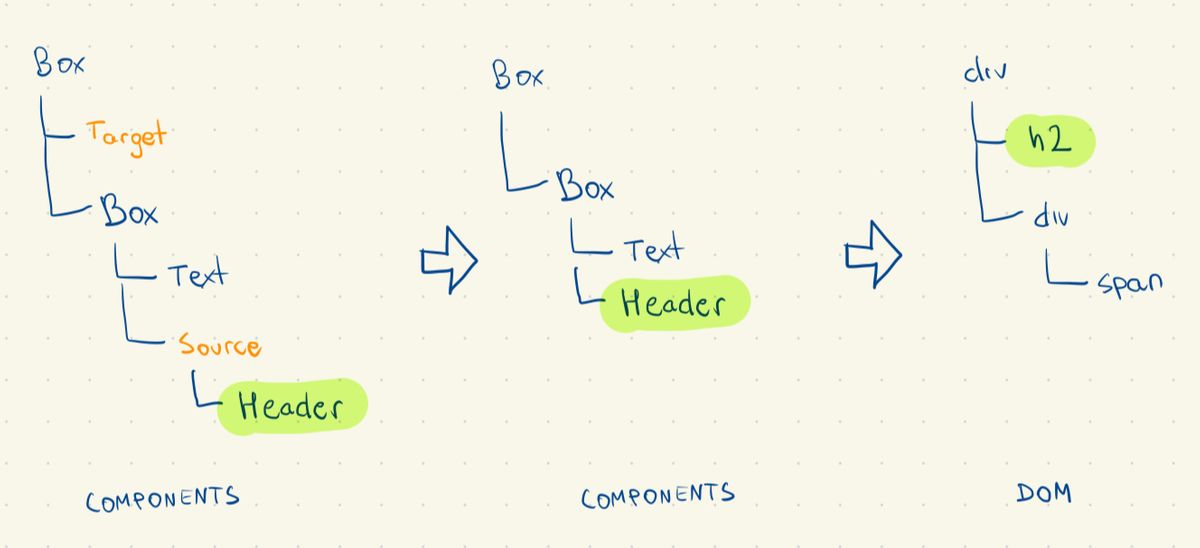 Box
Target
Box
Text
Source
Header
COMPONENTS
Box
Box
Text
Header
COMPONENTS
div
h2
div
span
DOM